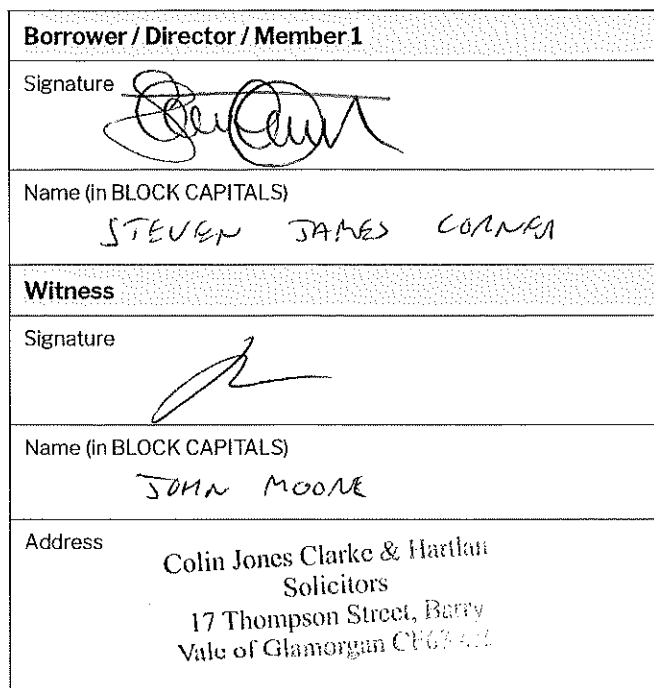 Borrower / Director / Member 1
Signature
Name (in BLOCK CAPITALS)
STEVEN JAMES CORNER
Witness
Signature
Name (in BLOCK CAPITALS)
JOHN MOORE
Address
Colin Jones Clarke & Hartland
Solicitors
17 Thompson Street, Barry
Vale of Glamorgan